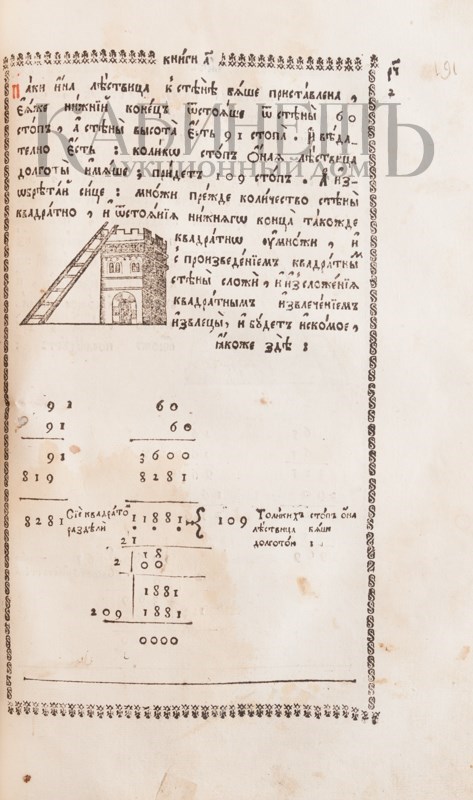 КНИГИ А҃
РЧ҃
2
191
КАБИНЕТЪ
АУКЦИОННЫЙ ДОМ
Паки и҆на лѣствица к̾ стѣнѣ бѧше приставлена,
єѧ́же нижнїй конецъ ѿстоѧше ѿ стѣны 60
стопъ, а҆ стѣны высота є҆сть 91 стопа: и҆ вѣда-
телно є҆сть: коликѡ стопъ ѻ҆наѧ лѣствица
долготы̀ и҆мѧше; прїидетъ 109 стопъ. А҆ и҆з-
ѡбрѣтай сице: множи прежде количество стѣны
квадратно, и҆ ѿстоѧнїѧ нижнѧгѡ конца такожде
квадратнѡ ᲂу҆множи, и҆
с̾ произведенїемъ квадратнымъ
стѣны сложи, и҆ и҆з̾ сложенїѧ
квадратнымъ и҆звлеченїемъ
и҆звлецы̀, и҆ будетъ и҆скомое,
ꙗ҆коже здѣ:
91 60
91 60
91 3600
819 8281
8281 Сїе квадратѡ раздѣли 11881 109 Толикихъ стопъ ѻна лѣствица бѧше долготою:
21
18
2 00
1881
209 1881
0000